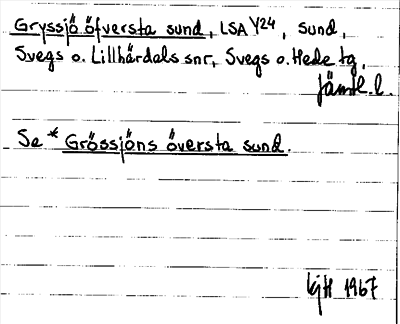 Gryssjö öfversta sund, LSA Y24, sund,
Svegs o. Lillhärdals snr, Svegs o. Hede tg,
Jämtl. l.
Se * Grössjöns översta sund.
kjH 1967